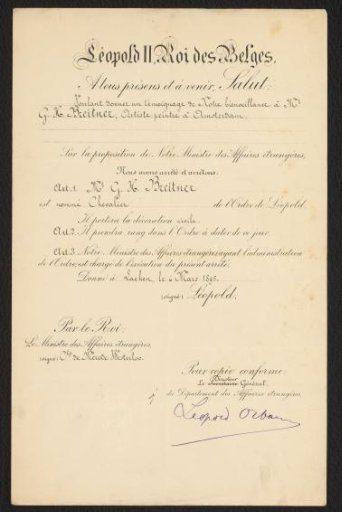 Léopold II, Roi des Belges,
A tous présens et à venir, Salut:
Voulant donner un témoignage de Notre bienveillance à Mr
G. H. Breitner, Artiste peintre à Amsterdam,
Sur la proposition de Notre Ministre des Affaires étrangères,
Nous avons arrêté et arrêtons:
Art: 1. Mr G. H. Breitner
est nommé Chevalier de l'Ordre de Léopold.
Il portera la décoration civile.
Art: 2. Il prendra rang dans l'Ordre à dater de ce jour.
Art: 3. Notre Ministre des Affaires étrangères ayant l'administration
de l'Ordre, est chargé de l'exécution du présent arrêté.
Donné à Laeken, le 6 Mars 1895.
signé: Léopold.
Par le Roi:
Le Ministre des Affaires étrangères,
signé: Cte de Mérode Westerloo.
Pour copie conforme:
Directeur
Le Secrétaire Général,
du Département des Affaires étrangères
Léopold Orban